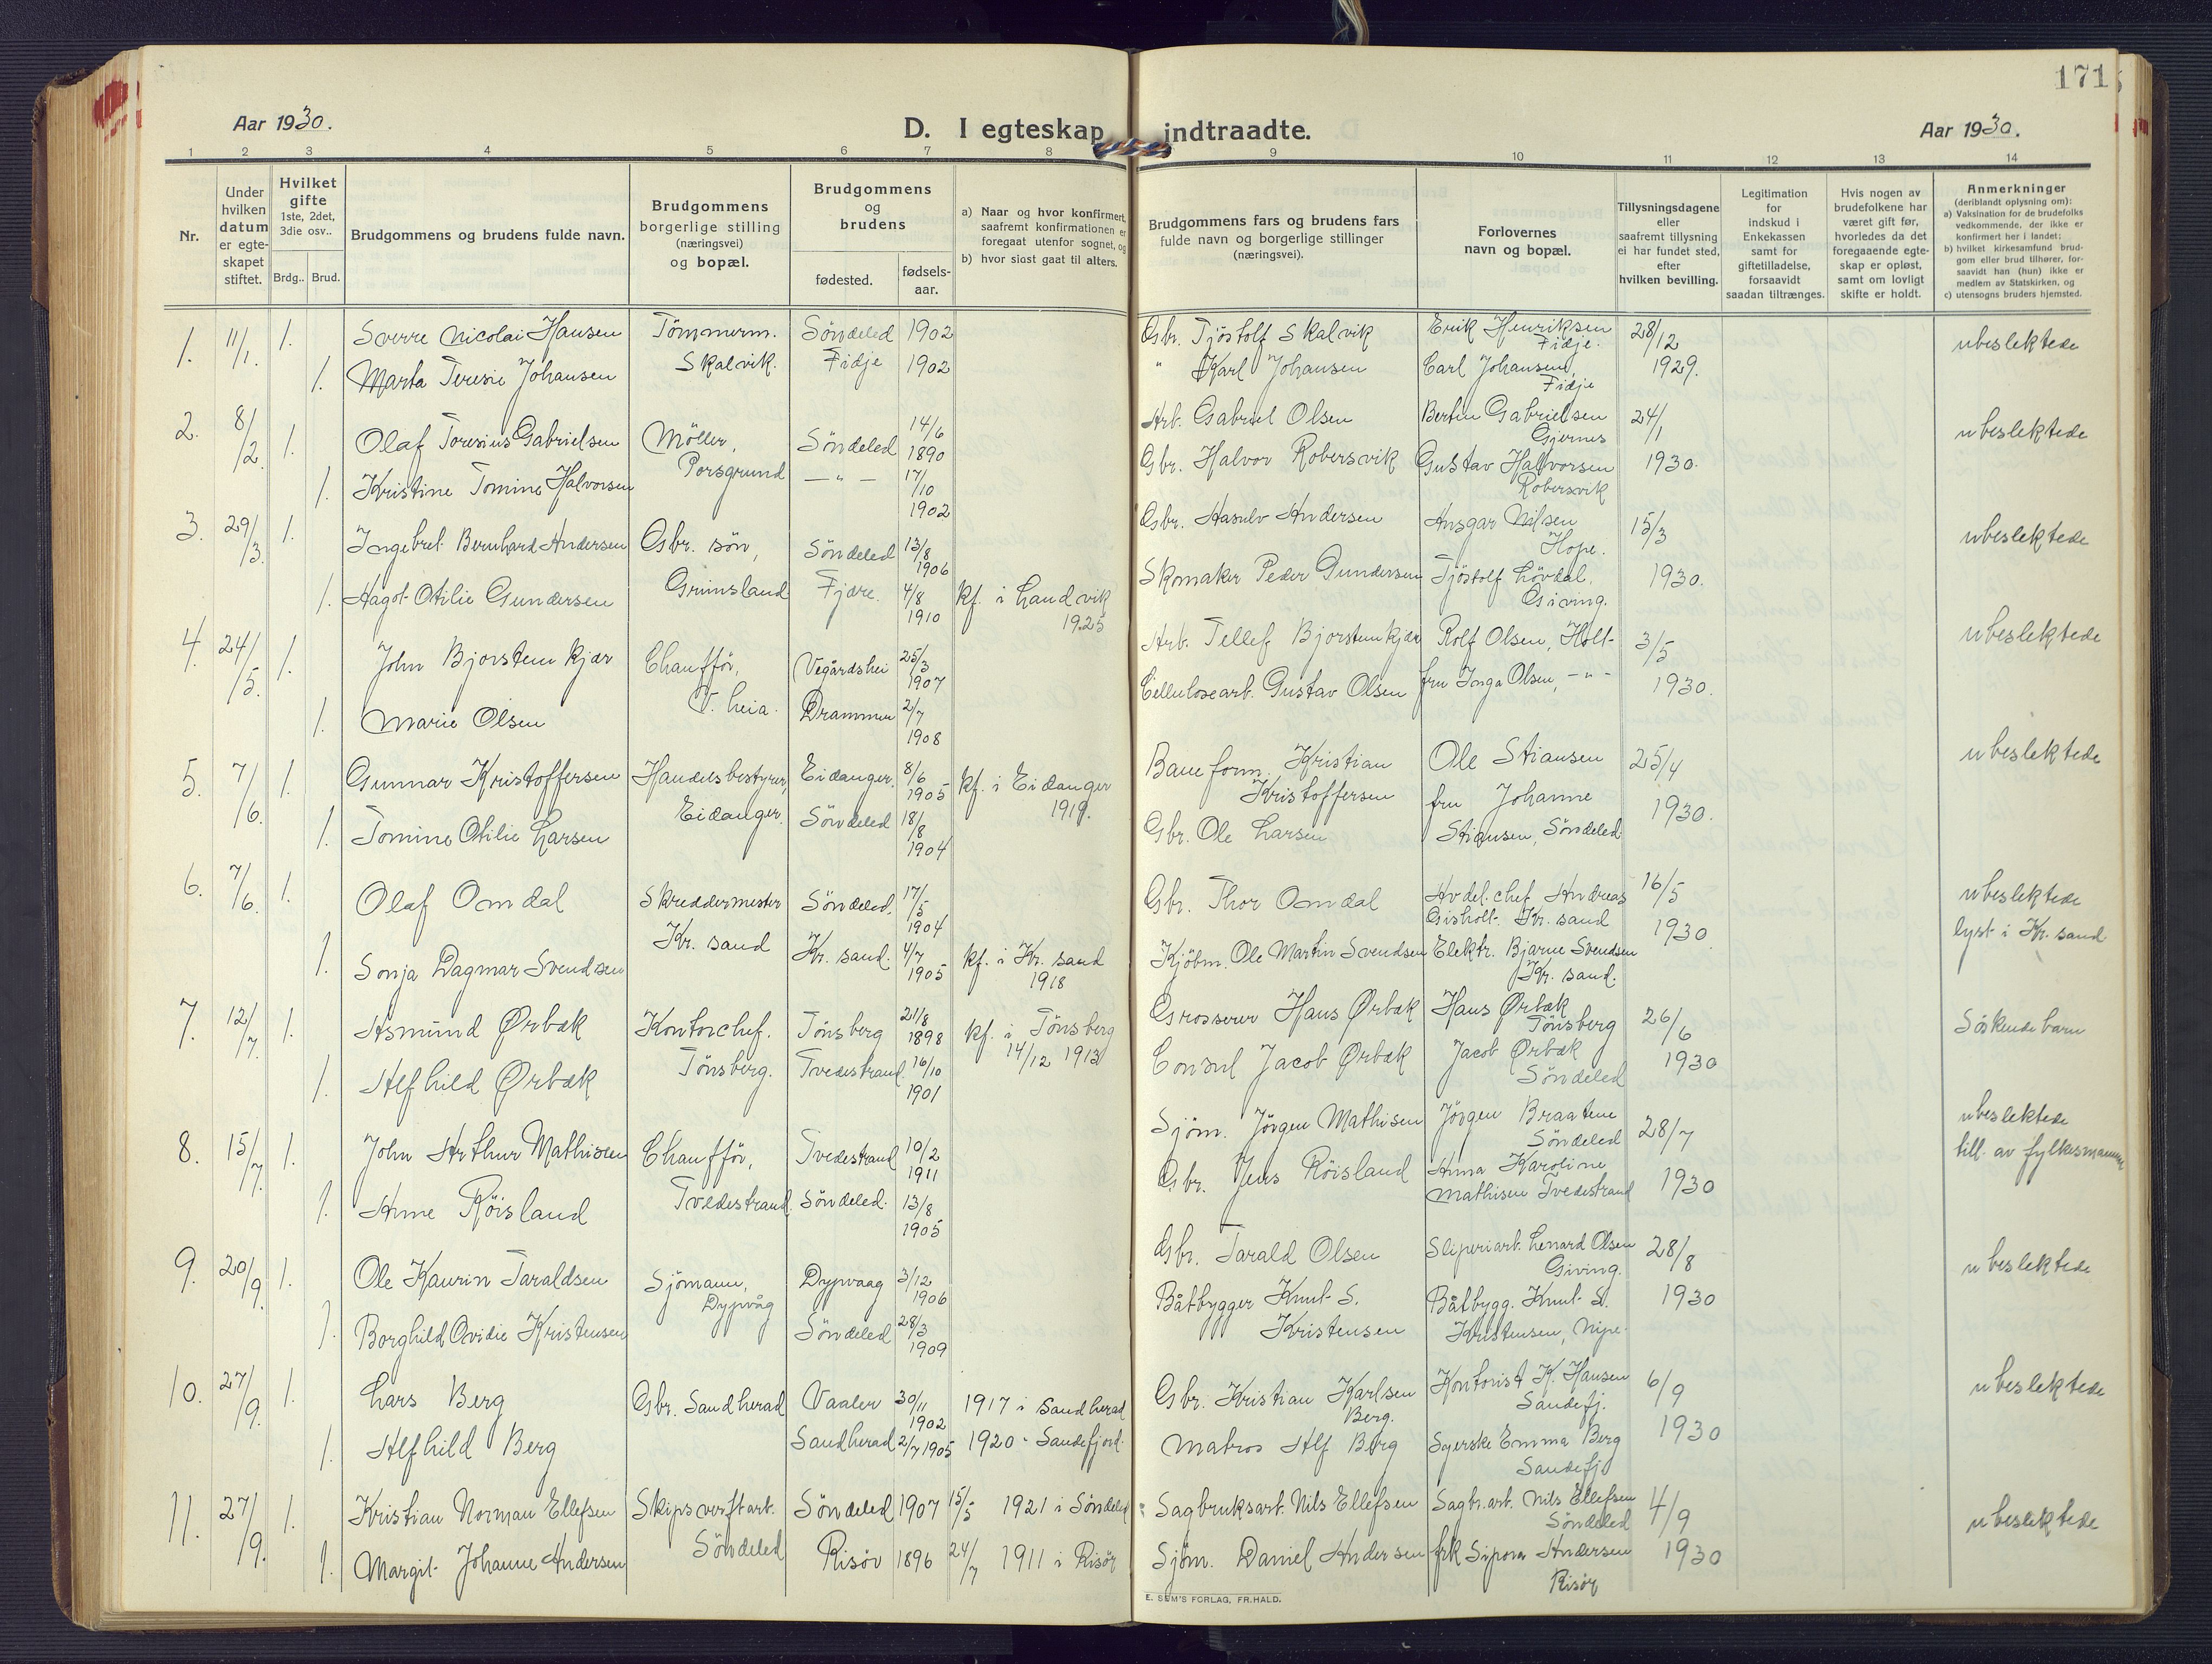 171
Aar 1930.
D. I egteskap indtraadte.
Aar 1930.
1 2 3 4 5 6 7 8 9 10 11 12 13 14
Nr.
Under hvilken datum er egteskapet stiftet.
Hvilket gifte 1ste, 2det, 3die osv..
Brdg.. Brud.
Brudgommens og brudens fulde navn.
Brudgommens borgerlige stilling (næringsvei) og bopæl.
Brudgommens og brudens
fødested. fødselsaar.
a) Naar og hvor konfirmert, saafremt konfirmationen er foregaat utenfor sognet, og
b) hvor sidst gaat til alters.
Brudgommens fars og brudens fars fulde navn og borgerlige stillinger (næringsvei).
Forlovernes navn og bopæl.
Tillysningsdagene eller saafremt tillysning ei har fundet sted, efter hvilken bevilling.
Legitimation for indskud i Enkekassen samt for giftetilladelse, forsaavidt saadan tiltrænges.
Hvis nogen av brudefolkene har været gift før, hvorledes da det foregaaende egteskap er opløst, samt om lovligt skifte er holdt.
Anmerkninger (deriblandt oplysning om):
a) Vaksination for de brudefolks vedkommende, der ikke er konfirmert her i landet;
b) hvilket kirkesamfund brudgom eller brud tilhører, forsaavidt han (hun) ikke er medlem av Statskirken, og
c) utensogns bruders hjemsted.
1. 11/1. 1. Sverre Nicolai Hansen Tömmerm. Söndeled 1902 Gbr. Tjöstolf Skalvik Erik Henriksen Fidje. 28/12 ubeslektede
1. Marta Teresie Johansen Skalvik. Fidje 1902 " Karl Johansen Carl Johansen, Fidje 1929.
2. 8/2. 1. Olaf Toresius Gabrielsen Möller, Söndeled 14/6 1890 Arb. Gabriel Olsen Bertin Gabrielsen Gjernes 24/1 ubeslektede
1. Kristine Tomine Halvorsen Porsgrund — " — 17/10 1902 Gbr. Halvor Robersvik Gustav Halvorsen Robersvik 1930.
3. 29/3. 1. Ingebret Bernhard Andersen Gbr. sön, Söndeled 13/8 1906 Gbr. Hasulv Andersen Ansgar Nilsen Hope. 15/3 ubeslektede
1. Hagot Otilie Gundersen Grimsland. Fjære. 4/8 1910 kf. i Landvik 1925 Skomaker Peder Gundersen Tjöstolf Lövdal, Giving. 1930.
4. 24/5. 1. John Bjorstemkjær Chaufför, Vegårdshei 25/3 1907 Arb. Tellef Bjorstemkjær Rolf Olsen, Holt- 3/5 ubeslektede
1. Marie Olsen V. heia. Drammen 2/7 1908 Cellulosearb. Gustav Olsen fru Inga Olsen, - " - 1930.
5. 7/6. 1. Gunnar Kristoffersen Handelsbestyrer, Eidanger. 8/6 1905 kf. i Eidanger 1919. Baneform. Kristian Kristoffersen Ole Stiansen 25/4 ubeslektede
1. Tomine Otilie Larsen Eidanger. Söndeled 18/8 1904 Gbr. Ole Larsen fru Johanne Stiansen, Söndeled. 1930.
6. 7/6. 1. Olaf Omdal Skreddermester Söndeled. 17/5 1904 Gbr. Thor Omdal Avdel.chef Andreas Gisholt. Kr. sand 16/5 ubeslektede
1. Sonja Dagmar Svendsen Kr. sand Kr. sand. 4/7 1905 kf. i Kr. sand 1918 Kjöbm. Ole Martin Svendsen Elektr. Bjarne Svendsen Kr. sand. 1930. lyst i Kr. sand
7. 12/7. 1. Asmund Ørbæk Kontorchef. Tönsberg 21/8 1898 kf. i Tönsberg 14/12 1913 Grosserer Hans Ørbæk Hans Ørbæk Tönsberg 26/6 Söskendebarn
1. Alfhild Ørbæk Tönsberg. Tvedestrand. 16/10 1901 Consul Jacob Ørbæk Jacob Ørbæk Söndeled 1930
8. 15/7. 1. John Arthur Mathisen Chaufför, Tvedestrand 10/2 1911 Sjöm. Jörgen Mathisen Jörgen Braatene Söndeled 28/7 ubeslektede
1. Anne Röisland Tvedestrand. Söndeled. 13/8 1905 Gbr. Jens Röisland Anna Karoline Mathisen Tvedestrand 1930 till. av fylkesmannen
9. 20/9. 1. Ole Kaurin Taraldsen Sjömann, Dypvaag 3/12 1906 Gbr. Tarald Olsen Sliperiarb. Lenard Olsen Giving. 28/8 ubeslektede
1. Borghild Ovidie Kristensen Dypvåg Söndeled 28/3 1909 Båtbygger Knut S. Kristensen Båtbygg. Knut S. Kristensen, Nipe. 1930
10. 27/9. 1. Lars Berg Gbr. Sandherad Vaaler 30/11 1902 1917 i Sandherad Gbr. Kristian Karlsen Berg. Kontorist K. Hansen Sandefj. 6/9 ubeslektede
1. Alfhild Berg Sandherad 2/7 1905 1920 - Sandefjord. Matros Alf Berg Syerske Emma Berg Sandefj 1930
11. 27/9. 1. Kristian Norman Ellefsen Skipsverftarb. Söndeled 1907 15/5 1921 i Söndeled Sagbruksarb. Nils Ellefsen Sagbr.arb. Nils Ellefsen Söndeled 4/9 ubeslektede
1. Margit Johanne Andersen Söndeled Risör 1896 24/7 1911 i Risör Sjöm. Daniel Andersen frk Sipora Andersen Risör 1930
E. SEM'S FORLAG, FR.HALD.